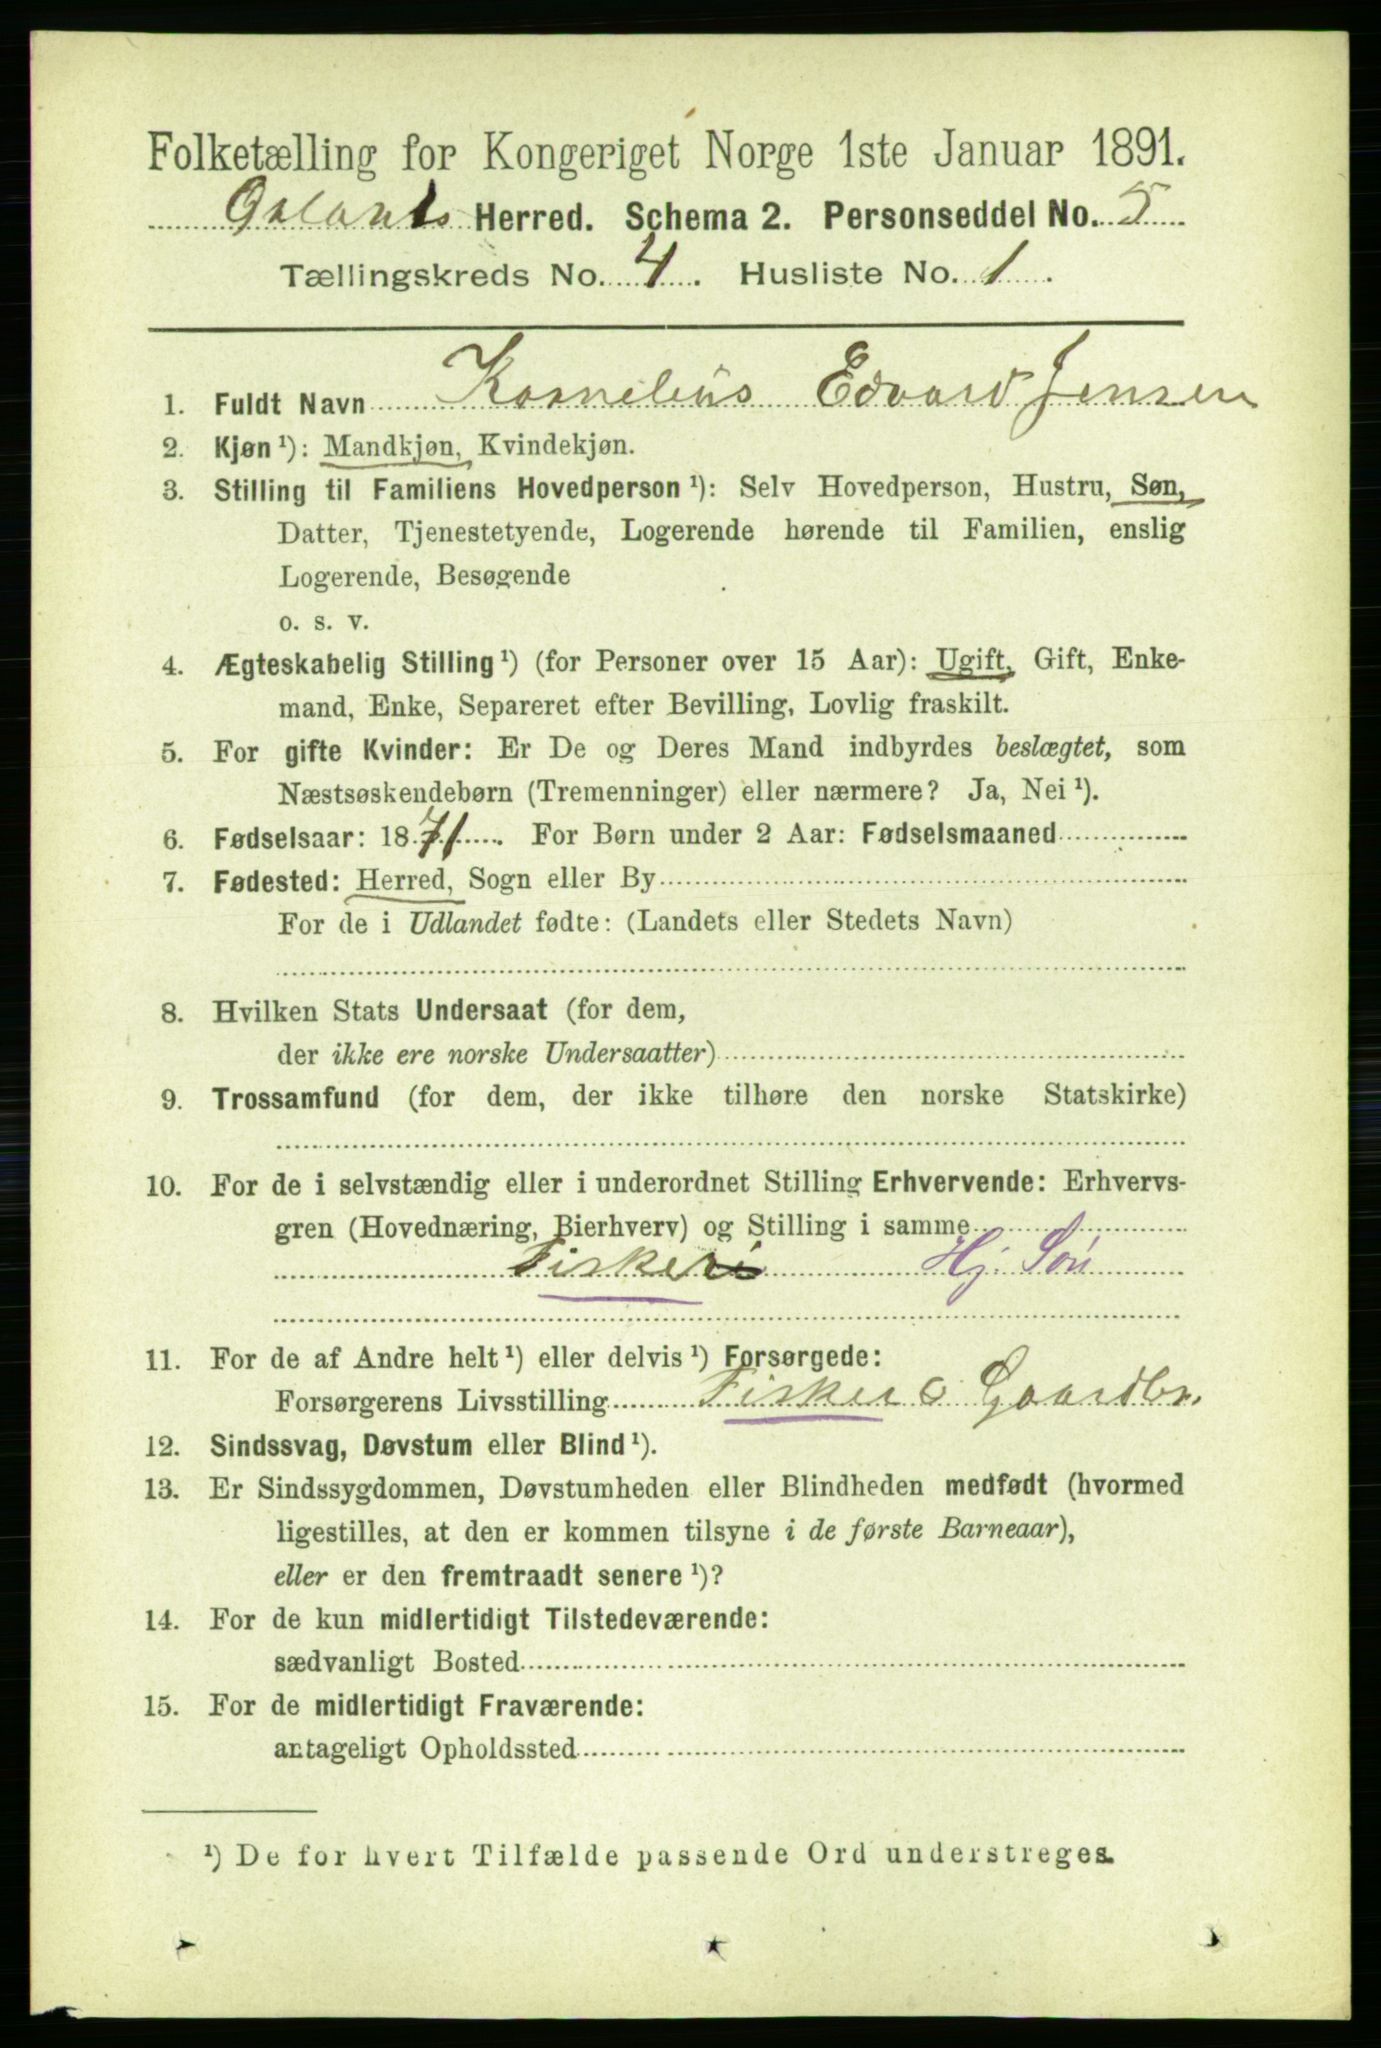 Folketælling for Kongeriget Norge 1ste Januar 1891.
Herred. Schema 2. Personseddel No. 5
Tællingskreds No. 4. Husliste No. 1.
1. Fuldt Navn Kornelius Edvard Jensen
2. Kjøn ¹): Mandkjøn, Kvindekjøn.
3. Stilling til Familiens Hovedperson ¹): Selv Hovedperson, Hustru, Søn,
Datter, Tjenestetyende, Logerende hørende til Familien, enslig
Logerende, Besøgende
o. s. v.
4. Ægteskabelig Stilling ¹) (for Personer over 15 Aar): Ugift, Gift, Enke-
mand, Enke, Separeret efter Bevilling, Lovlig fraskilt.
5. For gifte Kvinder: Er De og Deres Mand indbyrdes beslægtet, som
Næstsøskendebørn (Tremenninger) eller nærmere? Ja, Nei ¹).
6. Fødselsaar: 1871. For Børn under 2 Aar: Fødselsmaaned
7. Fødested: Herred, Sogn eller By
For de i Udlandet fødte: (Landets eller Stedets Navn)
8. Hvilken Stats Undersaat (for dem,
der ikke ere norske Undersaatter)
9. Trossamfund (for dem, der ikke tilhøre den norske Statskirke)
10. For de i selvstændig eller i underordnet Stilling Erhvervende: Erhvervs-
gren (Hovednæring, Bierhverv) og Stilling i samme
Fiskeri Hj. Søn
11. For de af Andre helt ¹) eller delvis ¹) Forsørgede:
Forsørgerens Livsstilling Fisker & Gaardbr.
12. Sindssvag, Døvstum eller Blind ¹).
13. Er Sindssygdommen, Døvstumheden eller Blindheden medfødt (hvormed
ligestilles, at den er kommen tilsyne i de første Barneaar),
eller er den fremtraadt senere ¹)?
14. For de kun midlertidigt Tilstedeværende:
sædvanligt Bosted
15. For de midlertidigt Fraværende:
antageligt Opholdssted
¹) De for hvert Tilfælde passende Ord understreges.